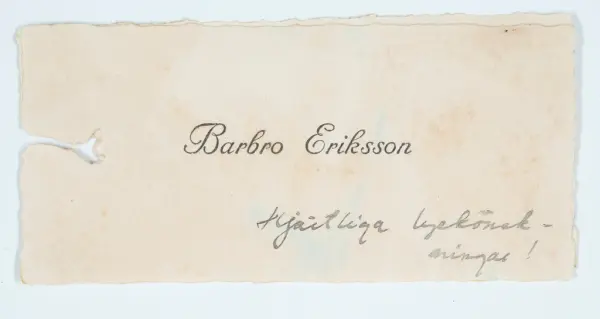 Barbro Eriksson
Hjärtliga lyckönsk-
ningar!